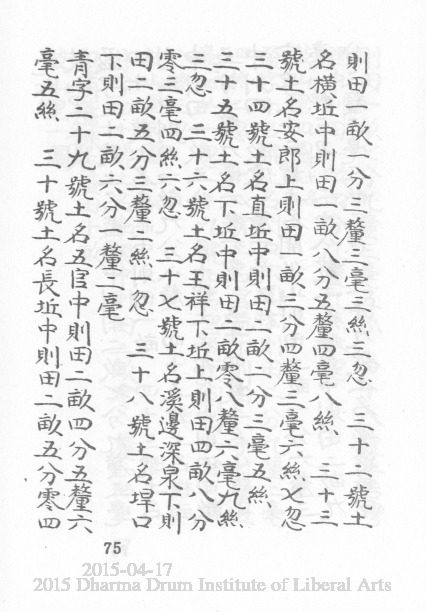 則田一畝一分三釐三毫三絲三忽　三十二號土
名橫坵中則田一畝八分五釐四毫八絲　三十三
號土名安郎上則田一畝三分四釐三毫六絲七忽
三十四號土名直坵中則田二畝二分三毫五絲
三十五號土名下坵中則田二畝零八釐六毫九絲
三忽　三十六號土名王祥下坵上則田四畝八分
零三毫四絲六忽　三十七號土名溪邊深泉下則
田二畝五分三釐二絲一忽　三十八號土名垾口
下則田二畝六分一釐二毫
青字二十九號土名五官中則田二畝四分五釐六
毫五絲　三十號土名長坵中則田二畝五分零四
75
2015-04-17
2015 Dharma Drum Institute of Liberal Arts